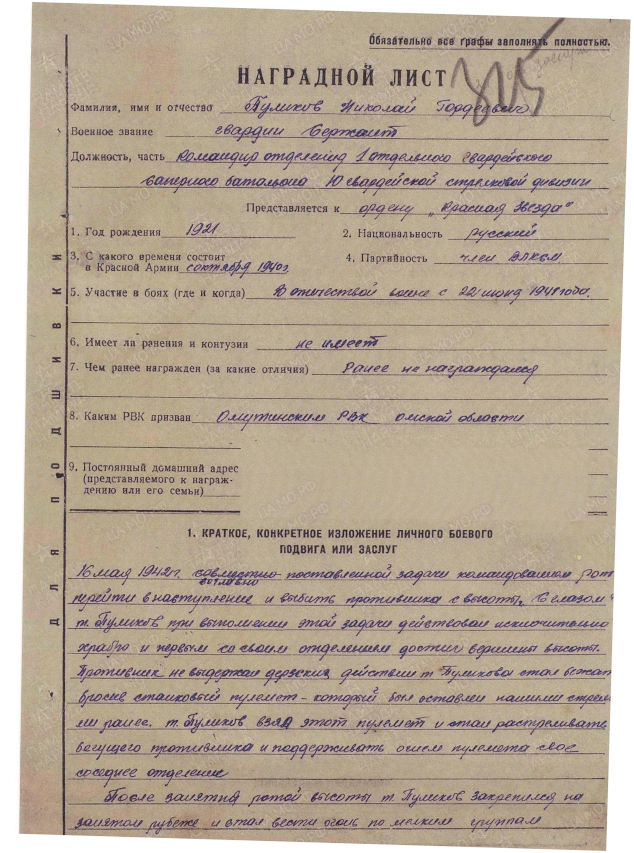 Обязательно все графы заполнять полностью.
НАГРАДНОЙ ЛИСТ
Фамилия, имя и отчество Пуликов Николай Гордеевич
Военное звание гвардии Сержант
Должность, часть Командир отделения 1 отдельного Гвардейского
саперного батальона 10 гвардейской стрелковой дивизии
Представляется к ордену „Красная Звезда"
1. Год рождения 1921
2. Национальность русский
3. С какого времени состоит
в Красной Армии сентября 1940г.
4. Партийность член ВЛКСМ
5. Участие в боях (где и когда) В отечествой воине с 22 июня 1941 года.
6. Имеет ла ранения и контузии не имеет
7. Чем ранее награжден (за какие отличия) Ранее не награждался
8. Каким РВК призван Омутинским РВК омской области
9. Постоянный домашний адрес
(представляемого к награж-
дению или его семьи)
ДЛЯ ПОДШИВКИ
1. КРАТКОЕ, КОНКРЕТНОЕ ИЗЛОЖЕНИЕ ЛИЧНОГО БОЕВОГО
ПОДВИГА ИЛИ ЗАСЛУГ
16 мая 1942г. согласно поставленной задачи командованием рот
перейти в наступление и выбить противника с высоты
т. Пуликов при выполнении этой задачи действовал исключительно
храбро и первым со своим отделением достиг вершины высоты.
Противник не выдержал дерзких действий т. Пуликова стал бежат
бросив станковый пулемет - который был оставлен нашими стрелк
ми ранее. т. Пуликов взял этот пулемет и стал растреливать
бегущего противника и поддерживать огнем пулемета свое
соседнее отделение
После занятия ротой высоты т. Пуликов закрепился на
занятом рубеже и стал вести огонь по мелким группам